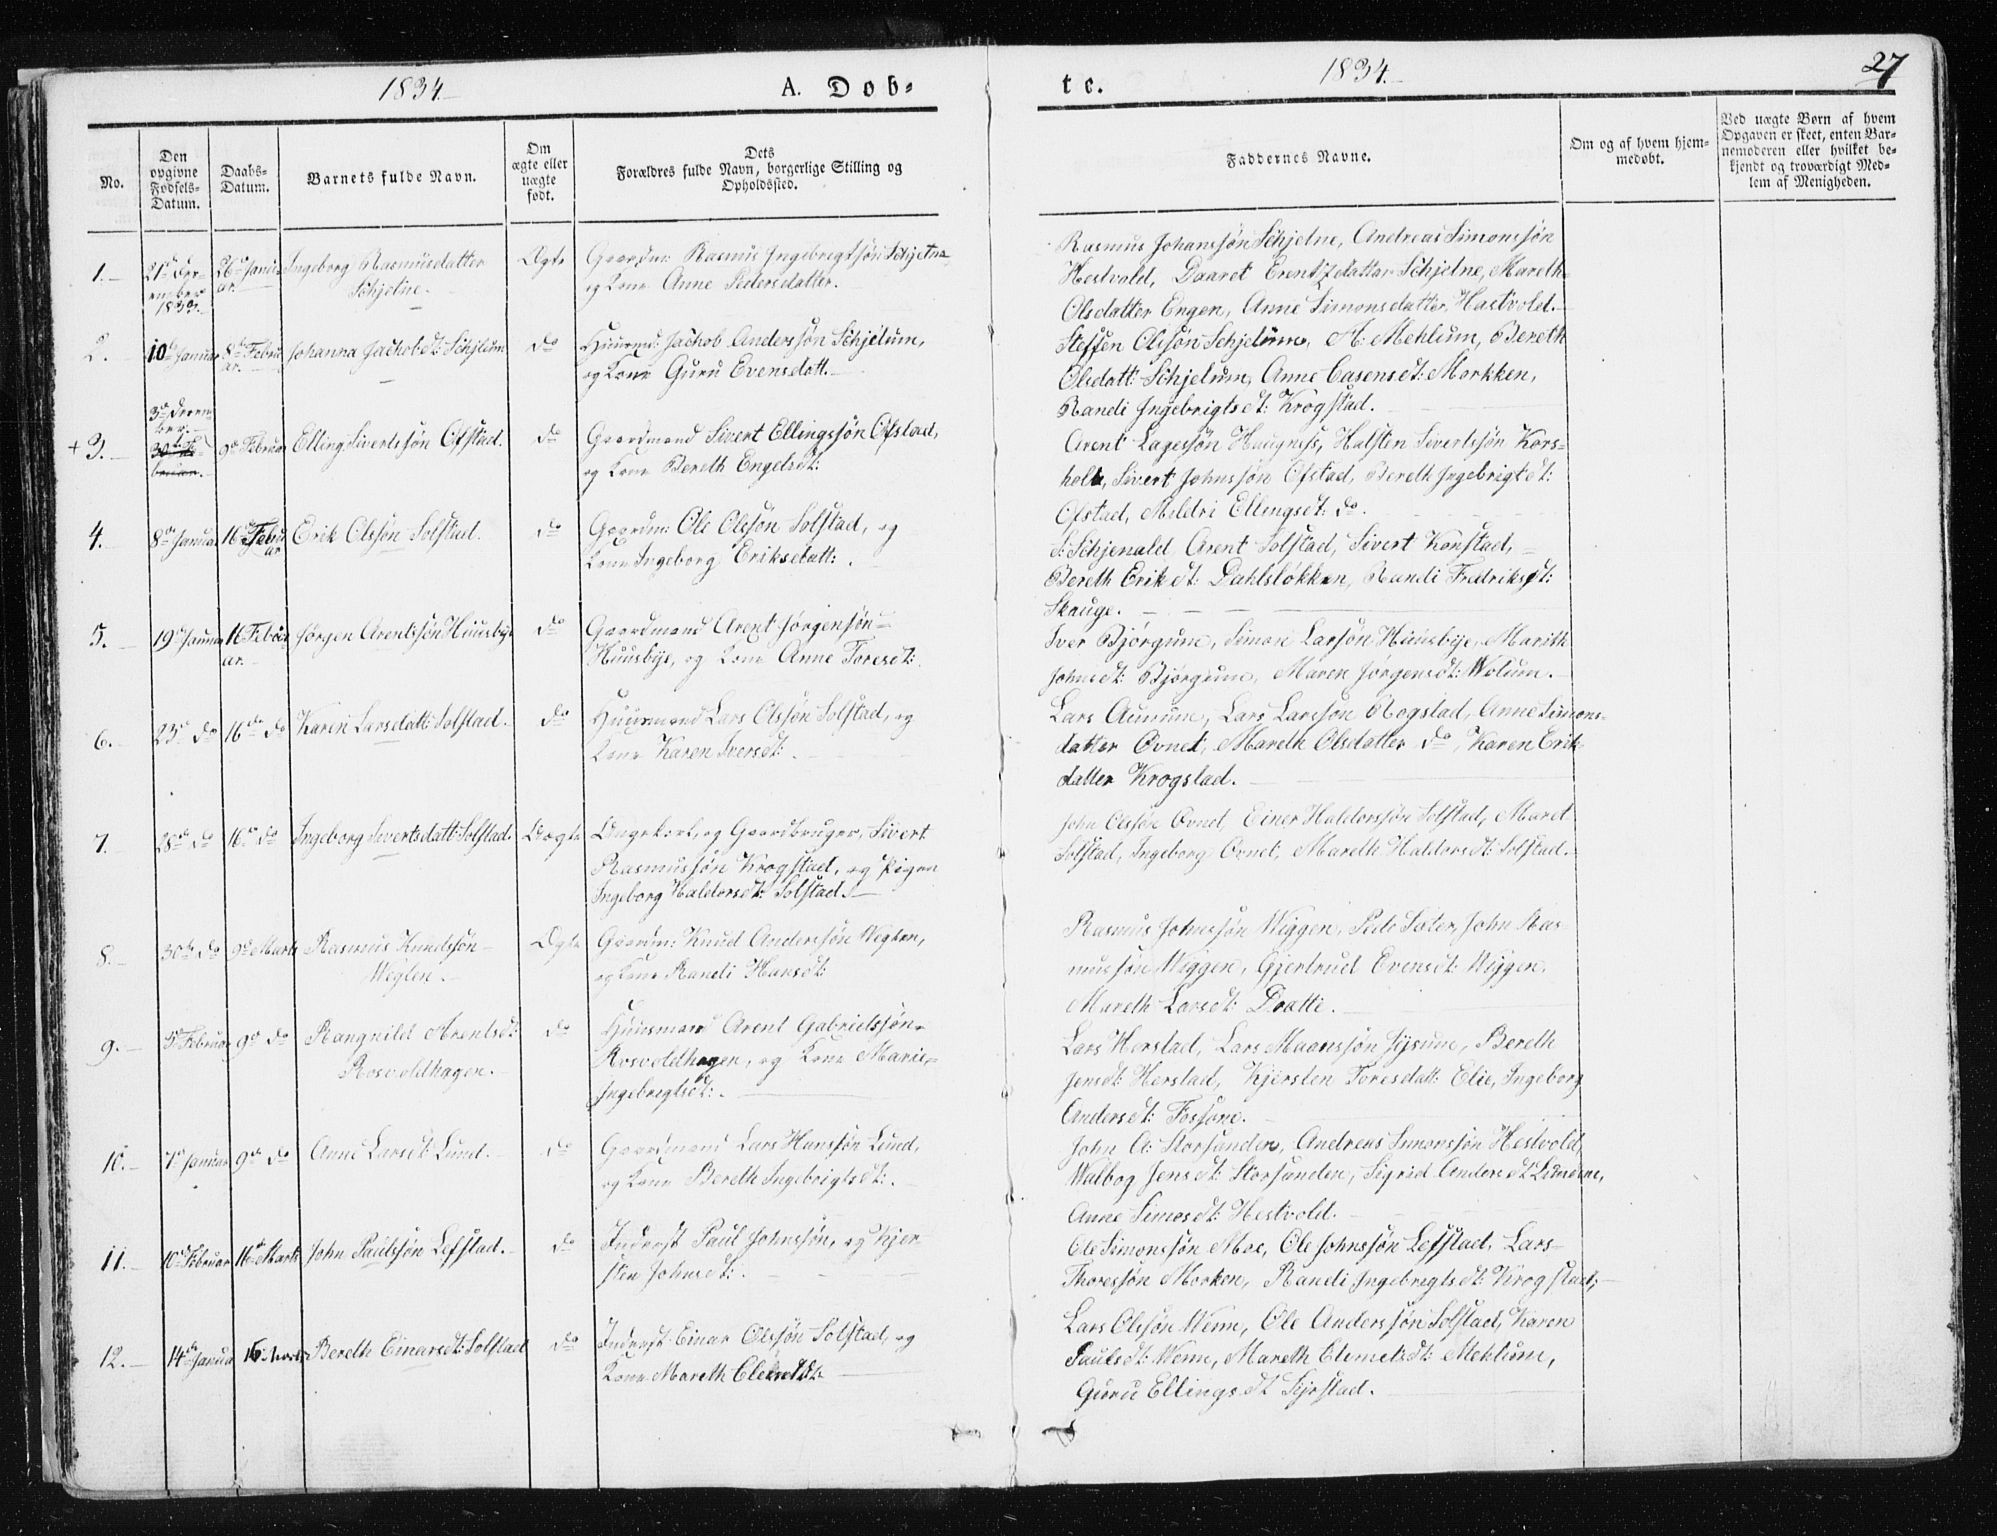 1834.
A. Døb-
te.
1834.
27
No.
Den opgivne Fødsels-Datum.
Daabs-Datum.
Barnets fulde Navn.
Om ægte eller uægte født.
Dets Forældres fulde Navn, borgerlige Stilling og Opholdssted.
Faddernes Navne.
Om og af hvem hjem-medøbt.
Ved uægte Børn af hvem Opgaven er skeet, enten Bar-nemoderen eller hvilket be-kjendt og troværdigt Med-lem af Menigheden.
1. 21de December 1833. 26de Januar. Ingeborg Rasmusdatter Schjetne. Ægte
Gaardm: Rasmus Ingebrigtsøn Schjetne,
og Kone Anne Pedersdatter.
Rasmus Johanssøn Schjetne, Andreas Simonssøn
Hestvold, Daaret Erentzdatter Schjetne, Mareth
Olsdatter Engen, Anne Simonsdatter Hastvold.
2. 10de Januar 8de Februar. Johanna Jachobsdt: Schjelum do
Huusmd: Jachob Anderssøn Schjelum,
og Kone Guru Evensdatt.
Steffen Olssøn Schjelum, A: Mehlum, Bereth
Olsdatt: Schjelum, Anne Casensdt: Morkken,
Randi Ingebrigtsdt: Krogstad.
+ 3. 3de December. 9de Februar Elling Sivertssøn Ofstad. do
Gaardmand Sivert Ellingssøn Ofstad,
og Kone Bereth Engelsdt:
Arent Lagesøn Haugness, Halsten Sivertssøn Kors-
holt, Sivert Johnssøn Ofstad, Bereth Ingebrigtsdt:
Ofstad, Mildri Ellingsdt: do.
4. 8de Januar 16de Februar Erik Olssøn Solstad. do
Gaardm: Ole Olssøn Solstad, og
Kone Ingeborg Eriksdatt:.
S: Schjenald Arent Solstad, Sivert Konstad,
Bereth Eriksdt: Dahlsløkken, Randi Fredriksdt:
Skauge.
5. 19de Januar 16 Februar. Jørgen Arentssøn Huusbye do
Gaardmand Arent Jørgensøn
Huusbye, og Kone Anne Toresdt:
Iver Bjørgum, Simon Larsøn Huusbye, Marith
Johnsdt: Bjørgum, Maren Jørgensdt: Wolum.
6. 23de do 16de do Karen Larsdatt: Solstad. do
Huusmand Lars Olssøn Solstad, og
Kone Karen Iversdt:.
Lars Aunum, Lars Larssøn Rogstad, Anne Simons-
datter Ovnet, Mareth Olsdatter do, Karen Erik-
datter Krogstad.
7. 28de do 16de do Ingeborg Sivertsdatt: Solstad. Uægte
Ungekarl, og Gaardbruger, Sivert
Rasmussøn Krogstad, og Pigen
Ingeborg Haldorsdt: Solstad.
John Olssøn Ovnet, Einer Haldorssøn Solstad, Maret
Solstad, Ingeborg Ovnet, Mareth Haldorsdt: Solstad.
8. 30de do 9de Marts Rasmus Knudssøn Weglen. Ægte
Gaardm: Knud Anderssøn Weglen,
og Kone Randi Hansdt:
Rasmus Johnssøn Wiggen, Peder Sæter, John Ras-
mussøn Wiggen, Gjertrud Evensdt: Wiggen,
Mareth Larsdt: Draatte.
9. 5de Februar 9de do Rangnild Arentsdt: Rosvoldhagen. do
Huusmand Arent Gabrielssøn
Rosvoldhagen, og Kone Marie
Ingebrigtsdt:.
Lars Herstad, Lars Maanssøn Bysum, Bereth
Jensdt: Herstad, Kjersten Toresdatt: Elie, Ingeborg
Andersdt: Fossom.
10. 7de Januar 9de do Anne Larsdt: Lund. do
Gaardmand Lars Hanssøn Lund,
og Kone Bereth Ingebrigtsdt:.
John A: Storsanden, Andreas Simonssøn Hestvold,
Walbog Jensdt: Storsanden, Sigrid Andersdt
Anne Simosdt: Hestvold.
11. 10de Februar 16de Marts John Paulssøn Lefstad. do
Inderst Paul Johnssøn, og Kjer-
sten Johnsdt:.
Ole Simonssøn Moe, Ole Johnssøn Lefstad, Lars
Thoressøn Morken, Randi Ingebrigtsdt: Krogstad,
12. 14de Januar 16 Marts Bereth Einarsdt: Solstad do
Inderst Einar Olssøn Solstad, og
Kone Mareth
Lars Olssøn Wenn, Ole Anderssøn Solstad, Karen
Paulsdt: Wenn, Mareth Clemetsdt: Mehlum,
Guru Ellingsdt